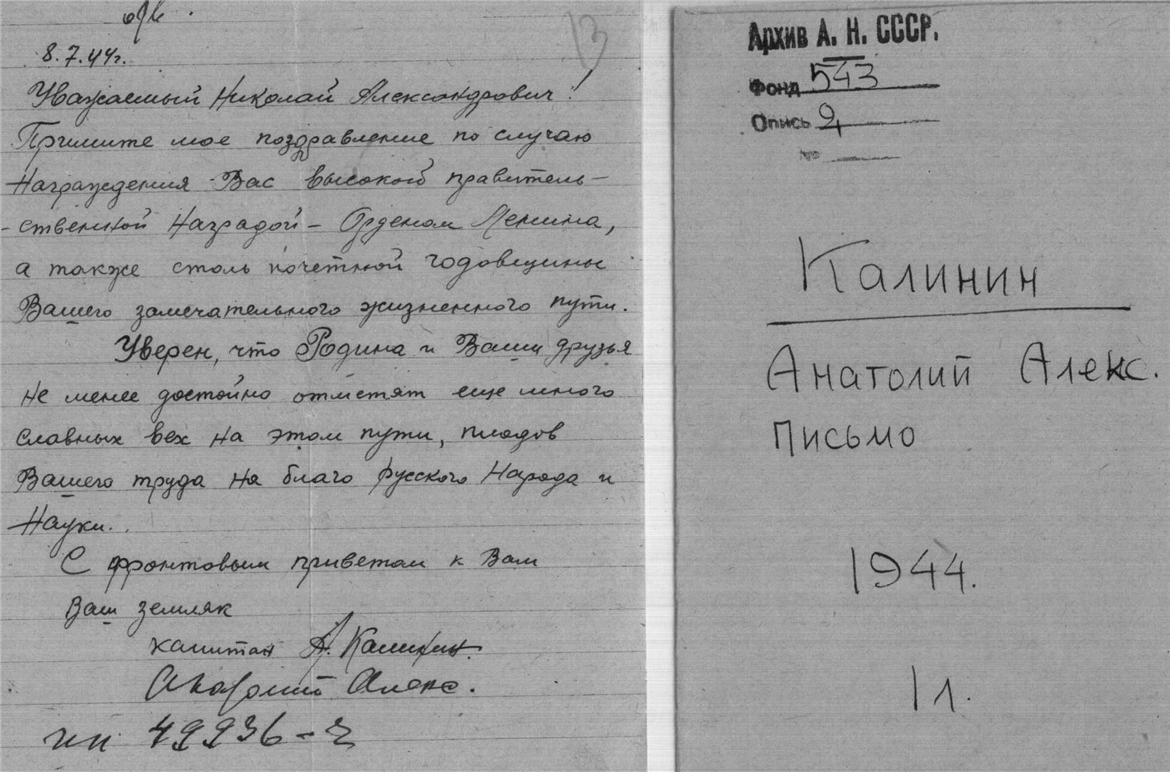 отв.
13
8.7.44г.
Уважаемый Николай Александрович!
Примите мое поздравление по случаю
Награждения Вас высокой правитель-
-ственной Наградой - Орденом Ленина,
а также столь почетной годовщины
Вашего замечательного жизненного пути.
Уверен, что Родина и Ваши друзья
не менее достойно отметят еще много
славных вех на этом пути, плодов
Вашего труда на благо русского Народа и
Науки.
С фронтовым приветом к Вам
Ваш земляк
капитан А. Калинин.
Анатолий Алекс.
пп 49936-Ч
Архив А. Н. СССР.
Фонд 543
Опись 4
№
Калинин
Анатолий Алекс.
Письмо
1944.
1 л.